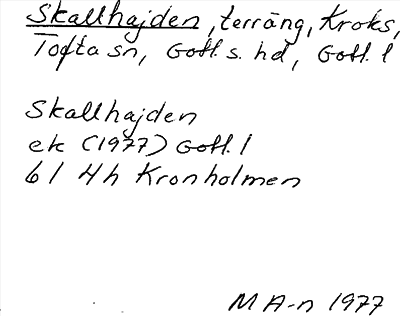 Skallhajden, terräng, Kroks,
Tofta sn, Gotl. s. hd, Gotl. l
Skallhajden
ek (1977) Gotl. l
6I 4h Kronholmen
M A-n 1977